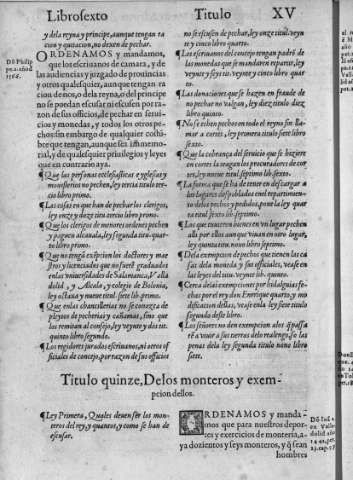 Libro sexto Titulo XV
y dela reyna y principe, aunque tengan ra
cion y quitacion, no dexen de pechar.
ORDENAMOS y mandamos,
que los escriuanos de camara, y de
las audiencias y juzgado de prouincias
y otros qualesquier, aunque tengan ra
cion de nos, o dela reyna, o del principe
no se puedan escusar ni escusen por ra-
zon de sus officios, de pechar en serui-
cios y monedas, y todos los otros pe-
chos: sin embargo de qualquier costũ
bre que tengan, aunque sea immemo-
rial, y de qualesquier priuilegios y leyes
que en contrario aya.
¶ Que las personas ecclesiasticas e yglesias y
monesterios no pechen, ley tercia titulo ter-
cio libro primo.
¶ Las cosas en que han de pechar los clerigos,
ley onze y doze titu. tercio libro primo.
¶ Que los clerigos de menores ordenes pechen
y paguen alcauala, ley segunda titu. quar-
to libro primo.
¶ Que no tengã exẽpcion los doctores y mae
stros y licenciados que no fuerẽ graduados
en las vniuersidades de Salamanca, Va
dolid, y Alcala, y colegio de Bolonia,
ley octaua y nueue titul. siete lib. primo.
¶ Que en las chancillerias no se conozca de
pleytos de pecherias y cañamas, sino que
los remitan al consejo, ley veynte y dos tit.
quinto libro segundo.
¶ Los regidores jurados escriuanos, ni otros of
ficiales de concejo, por razon de sus officios
no se escusen de pechar, ley onze titul. veyn
te y cinco libro quarto.
¶ Los escriuanos del concejo tengan padrõ de
las monedas que se mandaren repartir, ley
veynte y seys tit. veynte y cinco libro quar
to.
¶ Las donaciones que se hazen en fraude de
no pechar no valgan, ley diez titulo diez
libro quinto.
¶ No se echen pechos en todo el reyno sin lla-
mar a cortes, ley primera titulo siete libro
sexto.
¶ Que la cobrança del seruicio que se hiziere
en cortes la tengan los procuradores de cor
tes, ley nueue titul. septimo lib. sexto.
¶ La forma que se ha de tener en descargar a
los lugares despoblados en el repartimien-
to delos pechos y pedidos, por la ley quar
ta titul. sexto lib. septimo.
¶ Los que tuuieren bienes en vn lugar pechen
alli por ellos aun que viuan en otro lugar,
ley quinta titu. nono libro septimo.
¶ Dela exempcion de pechos que tienen las ca
sas dela moneda y sus officiales, vease en
las leyes del titu. veynte lib. quinto.
¶ Cerca delas exempciones por hidalguias fe-
chas por el rey don Enrrique quarto, y mo
dificacion dellas, vease en la ley siete titulo
segundo deste libro.
¶ Los señores no den exempcion alos q̃ passa
rẽ a viuir a sus tierras delo realengo, so las
penas dela ley segunda titulo nono libro
sete.
Titulo quinze, Delos monteros y exem-
pcion dellos.
¶ Ley Primera, Quales deuen ser los mon-
teros del rey, y quantos, y como se han de
escusar.
ORDENAMOS y manda-
mos que para nuestros depor-
tes y exercicios de monteria, a-
ya dozientos y seys monteros, y q̃ sean
hombres